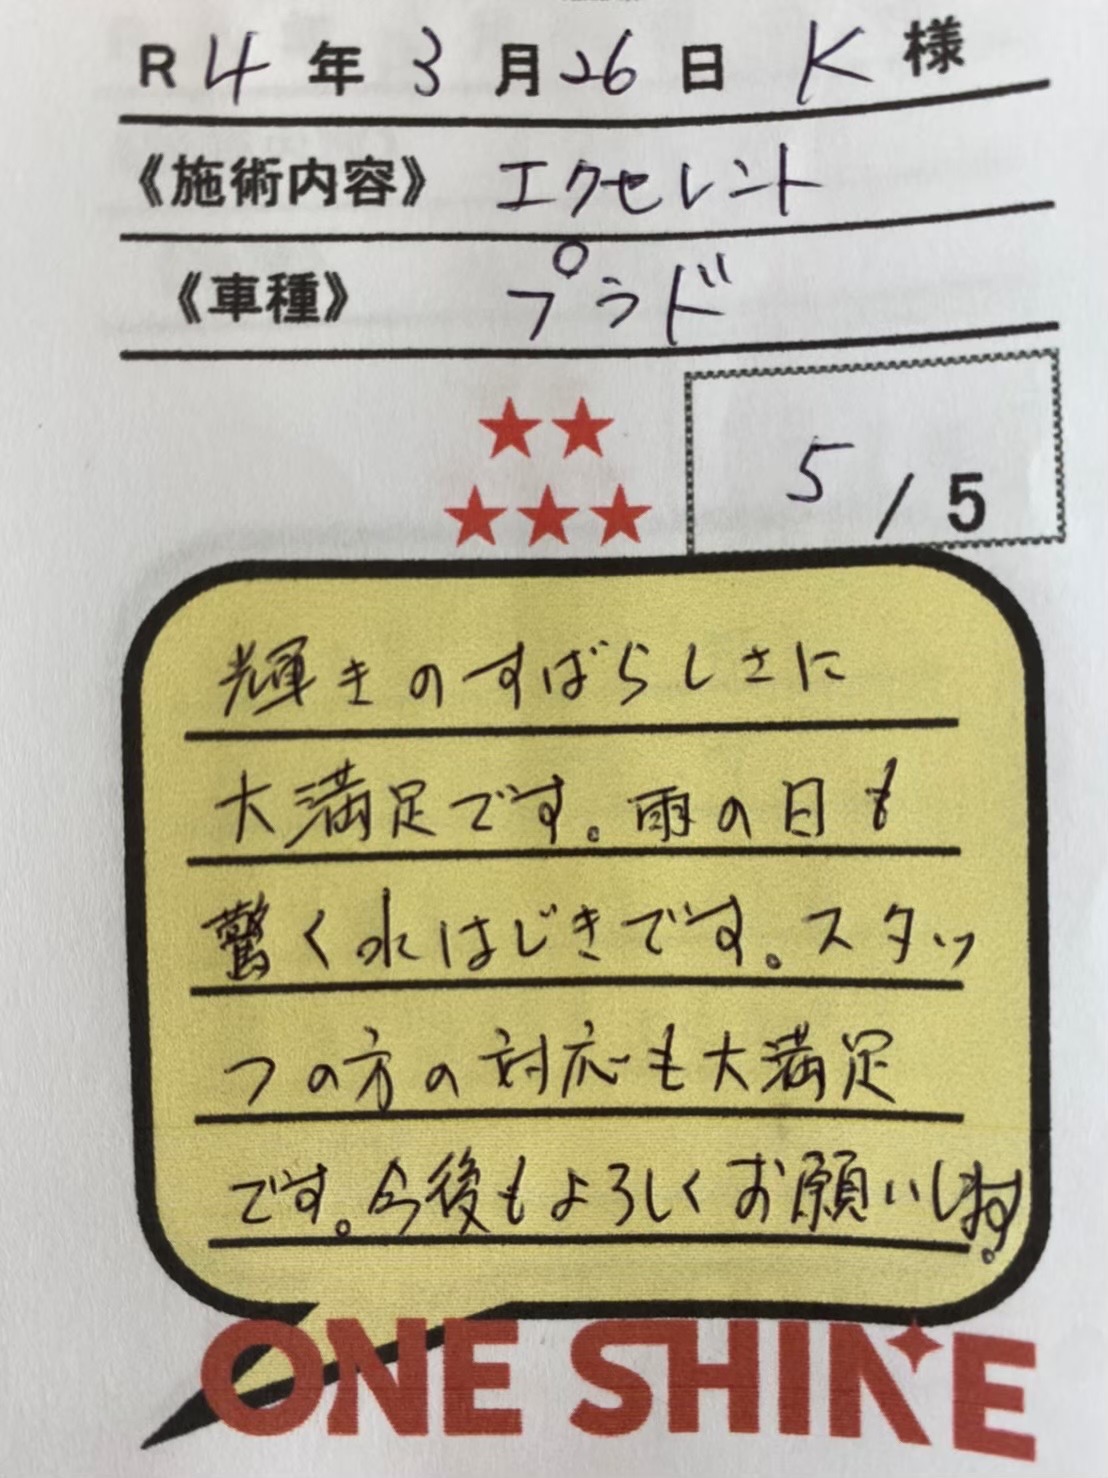 R 4 年 3 月 26 日 K 様
《施術内容》 エクセレント
《車種》 プラド
5 / 5
輝きのすばらしさに
大満足です。雨の日も
驚く水はじきです。スタッ
フの方の対応も大満足
です。今後もよろしくお願いします。
ONE SHINE